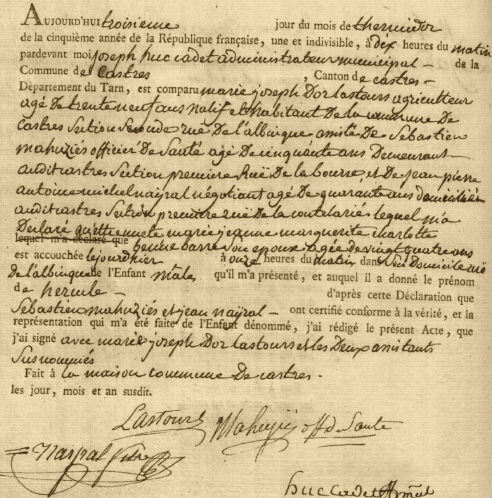 AUJOURD'HUI troisieme jour du mois de thermidor
de la cinquième année de la République française, une et indivisible, à dix heures du matin
pardevant moi joseph huc cadet administrateur municipal - de la
Commune de Castres , Canton de castres -
Département du Tarn, est comparu marie joseph Dor Lastours agriculteur
agé De trente neuf ans natif et habitant De la commune De
castres Section Seconde rue De l'albinque assisté De Sebastien
mahuziés officier De Santé agé De cinquante ans Demeurant
audit castres Section premiere Rue De la bourse, et De jean pierre
antoine michel nayral négotiant agé De quarante ans domicilié
audit castres Section premiere rue De la coutelarié lequel m'a
Declaré que marie jeanne marguerite charlotte
lequel m'a déclaré que barre Son epouse agée de vingt quatre ans
est accouchée le jour d'hier à onze heures du matin dans Son Domicile rue
de l'albinque de l'Enfant male qu'il m'a présenté, et auquel il a donné le prénom
de hercule - d'après cette Déclaration que
Sebastien mahuziés et jean nayral - ont certifié conforme à la vérité, et la
représentation qui m'a été faite de l'Enfant dénommé, j'ai rédigé le présent Acte, que
j'ai signé avec marie joseph Dor Lastours et les Deux assistants
Sus nommés
Fait à la maison commune De castres -
les jour, mois et an susdit.
Lastours Mahuziés off. de Santé
Nayral
huc cadet